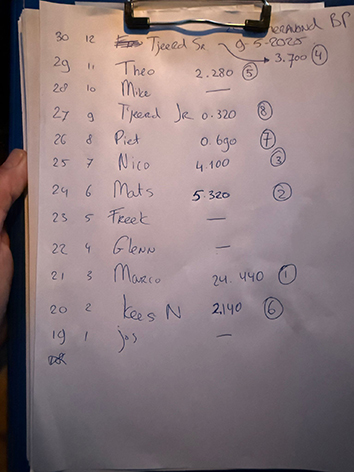 30 12 Tjeerd Sr 9-5-2025 BP
3.700 ④
29 11 Theo 2.280 ⑤
28 10 Mike —
27 9 Tjeerd Jr 0.320 ⑧
26 8 Piet 0.690 ⑦
25 7 Nico 4.100 ③
24 6 Mats 5.320 ②
23 5 Freek —
22 4 Glenn —
21 3 Marco 24.440 ①
20 2 Kees N 2.140 ⑥
19 1 jos —